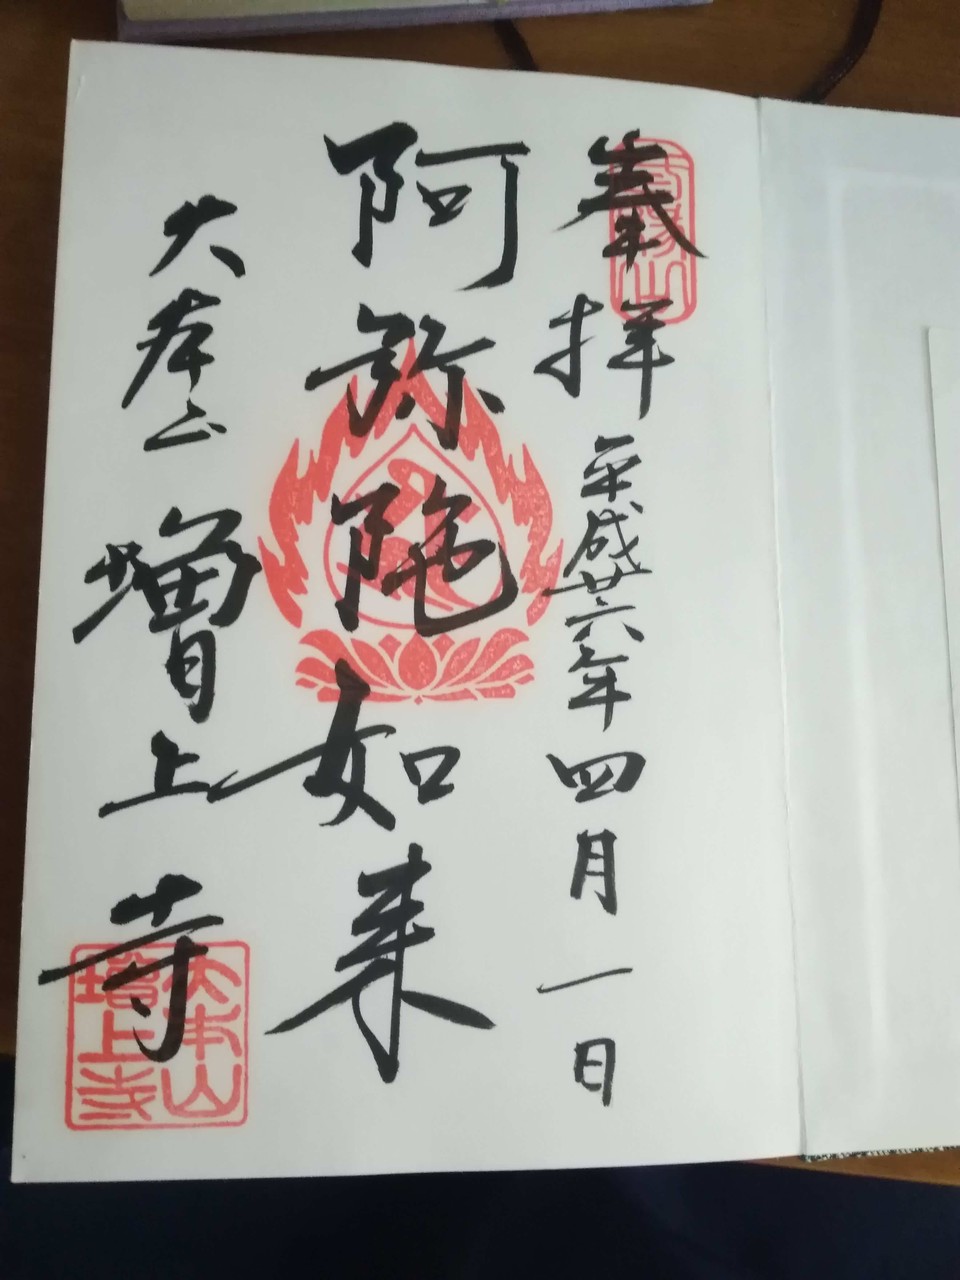 奉拝 平成廿六年四月一日
三縁山
阿弥陀如来
大本山 増上寺
大本山
増上寺